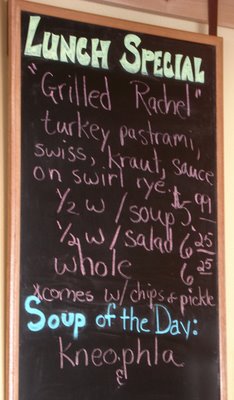 LUNCH SPECIAL
"Grilled Rachel"
turkey pastrami,
swiss, kraut, sauce
on swirl rye.
1/2 w/ soup $5.99
1/2 w/ salad 6.25
whole 6.25
*comes w/ chips & pickle
Soup of the Day:
Kneophla